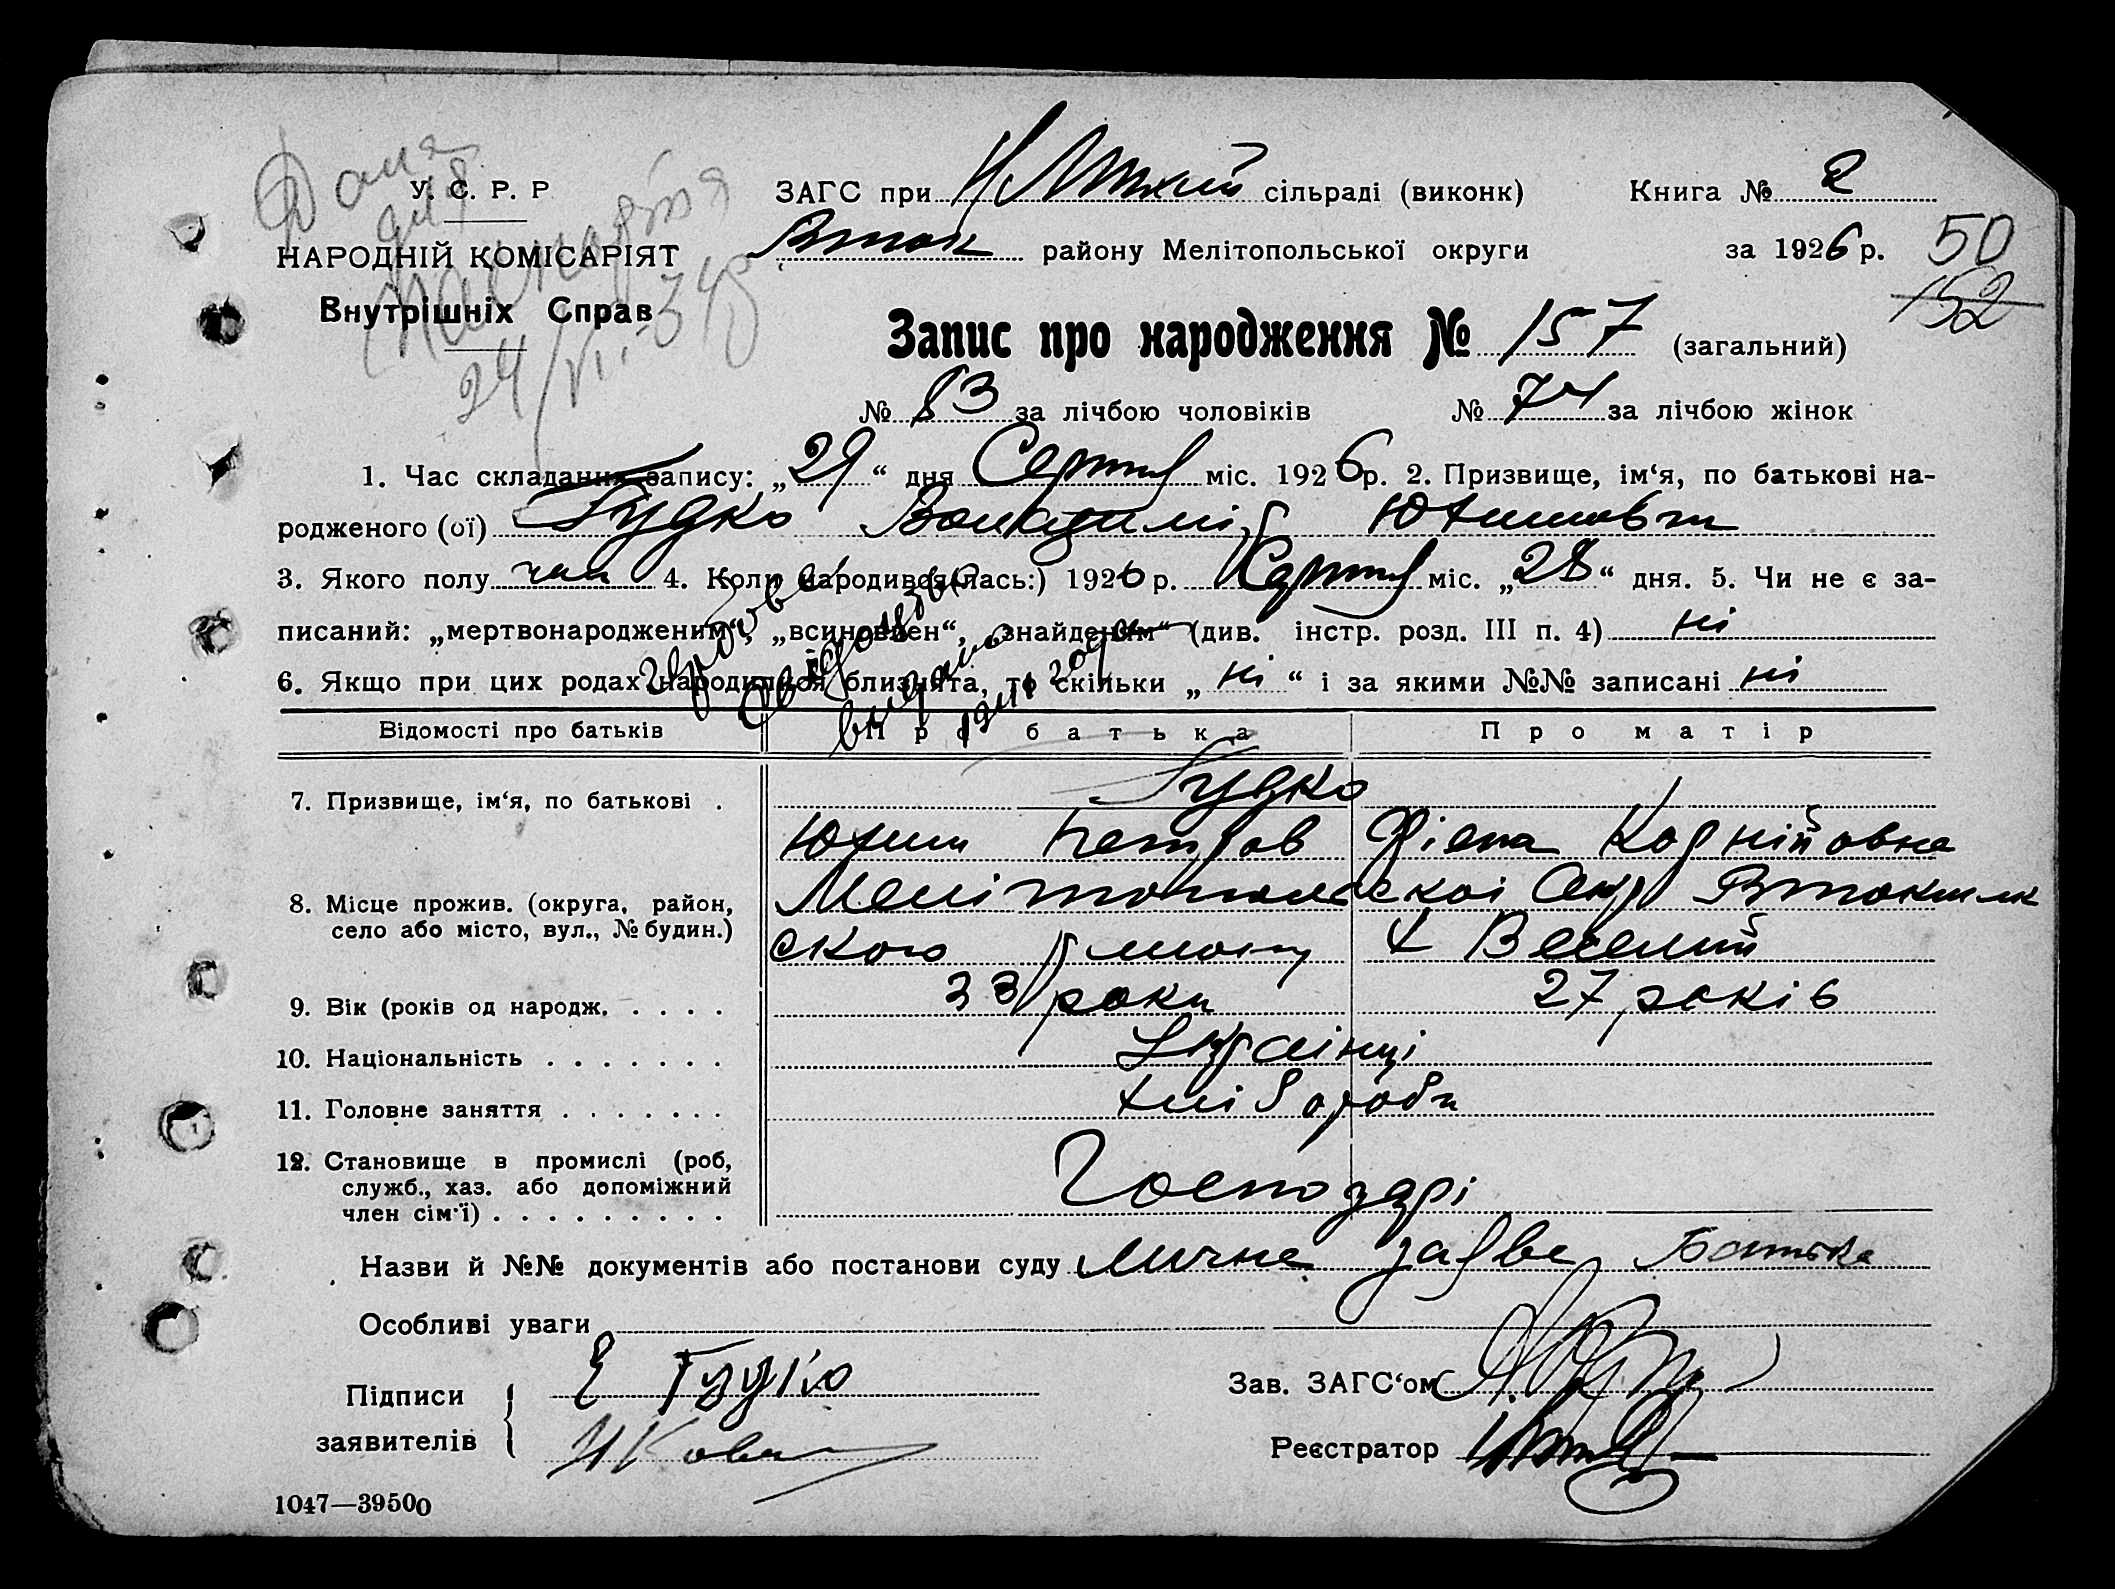 У. С. Р. Р
НАРОДНІЙ КОМІСАРІЯТ
Внутрішніх Справ
ЗАГС при сільраді (виконк) Книга № 2
району Мелітопольської округи за 1926 р.
50
152
Запис про народження № 157 (загальний)
№ 83 за лічбою чоловіків № 74 за лічбою жінок
1. Час складання запису: „29“ дня Серпня міс. 1926 р. 2. Призвище, ім‘я, по батькові на-
родженого (ої) Гудко Юхимович
3. Якого полу чол 4. Коли народився(лась:) 1926 р. Серпня міс. „28“ дня. 5. Чи не є за-
писаний: „мертвонародженим“, „всиновлен“, „знайденим“ (див. інстр. розд. III п. 4) ні
6. Якщо при цих родах народилися близнята, то скільки „ні“ і за якими №№ записані ні
Відомості про батьків Про батька Про матір
7. Призвище, ім‘я, по батькові . Гудко
Юхим Петров Корнійовна
8. Місце прожив. (округа, район, село або місто, вул., № будин.) Мелітопольскоі Окр
ского району х Веселий
9. Вік (років од народж. . . . . 33 роки 27 років
10. Національність . . . . . . . Украінці
11. Головне заняття . . . . . . . хлібороби
12. Становище в промислі (роб, служб., хаз. або допоміжний член сім‘ї) . . . . . . . . . Господарі
Назви й №№ документів або постанови суду Лична заява Батька
Особливі уваги
Підписи заявителів Е Гудко
Зав. ЗАГС‘ом
Реєстратор
1047—39500